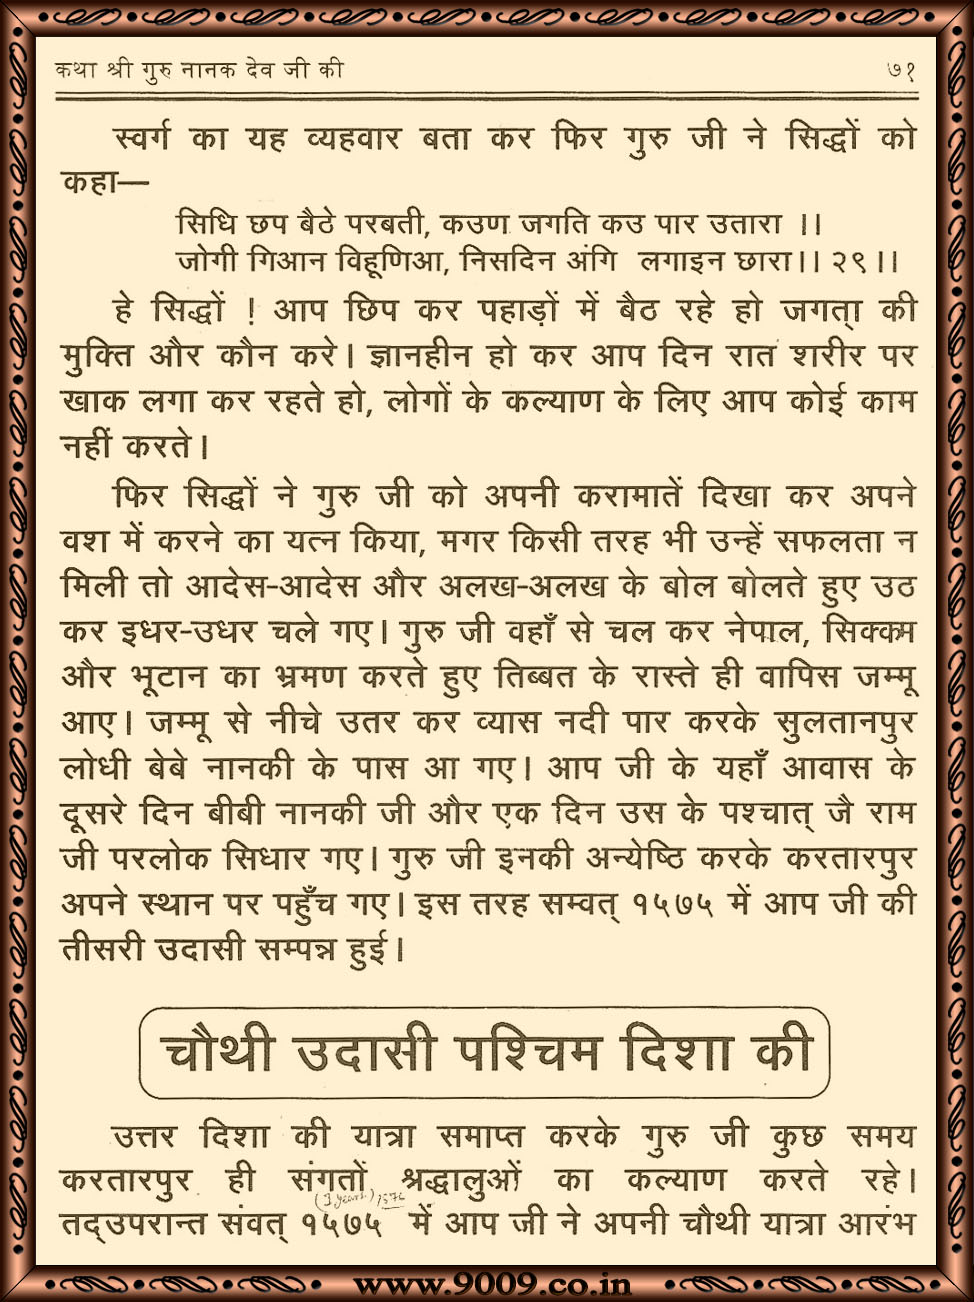 कथा श्री गुरु नानक देव जी की ७१
स्वर्ग का यह व्यहवार बता कर फिर गुरु जी ने सिद्धों को
कहा—
सिधि छप बैठे परबती, कउण जगति कउ पार उतारा ।।
जोगी गिआन विहूणिआ, निसदिन अंगि लगाइन छारा।। २९।।
हे सिद्धों ! आप छिप कर पहाड़ों में बैठ रहे हो जगत् की
मुक्ति और कौन करे। ज्ञानहीन हो कर आप दिन रात शरीर पर
खाक लगा कर रहते हो, लोगों के कल्याण के लिए आप कोई काम
नहीं करते।
फिर सिद्धों ने गुरु जी को अपनी करामातें दिखा कर अपने
वश में करने का यत्न किया, मगर किसी तरह भी उन्हें सफलता न
मिली तो आदेस-आदेस और अलख-अलख के बोल बोलते हुए उठ
कर इधर-उधर चले गए। गुरु जी वहाँ से चल कर नेपाल, सिक्कम
और भूटान का भ्रमण करते हुए तिब्बत के रास्ते ही वापिस जम्मू
आए। जम्मू से नीचे उतर कर व्यास नदी पार करके सुलतानपुर
लोधी बेबे नानकी के पास आ गए। आप जी के यहाँ आवास के
दूसरे दिन बीबी नानकी जी और एक दिन उस के पश्चात् जै राम
जी परलोक सिधार गए। गुरु जी इनकी अन्येष्ठि करके करतारपुर
अपने स्थान पर पहुँच गए। इस तरह सम्वत् १५७५ में आप जी की
तीसरी उदासी सम्पन्न हुई।
चौथी उदासी पश्चिम दिशा की
उत्तर दिशा की यात्रा समाप्त करके गुरु जी कुछ समय
करतारपुर ही संगतों श्रद्धालुओं का कल्याण करते रहे।
(3 years) 1576
तद्उपरान्त संवत् १५७५ में आप जी ने अपनी चौथी यात्रा आरंभ
www.9009.co.in